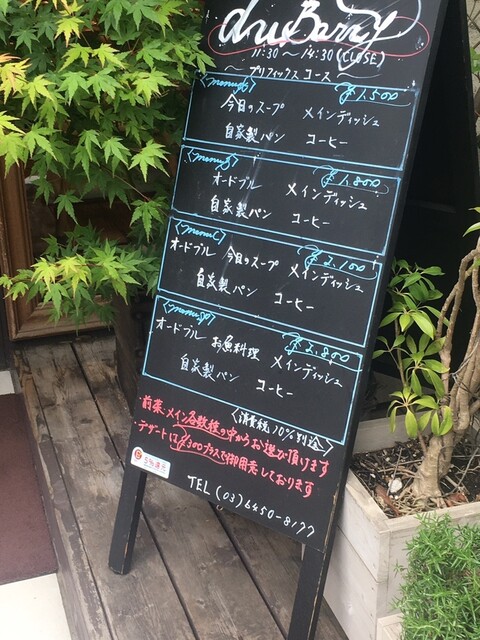 duBarry
11:30〜14:30(CLOSE)
〜プリフィックス コース〜
menu A ¥1,500
今日のスープ メインディッシュ
自家製パン コーヒー
menu B ¥1,800
オードブル メインディッシュ
自家製パン コーヒー
menu C ¥2,100
オードブル 今日のスープ メインディッシュ
自家製パン コーヒー
menu D ¥2,800
オードブル お魚料理 メインディッシュ
自家製パン コーヒー
〈消費税10%別途〉
・前菜・メイン各数種の中からお選び頂けます
・デザートは¥300プラスで御用意しております
TEL (03)6450-8177